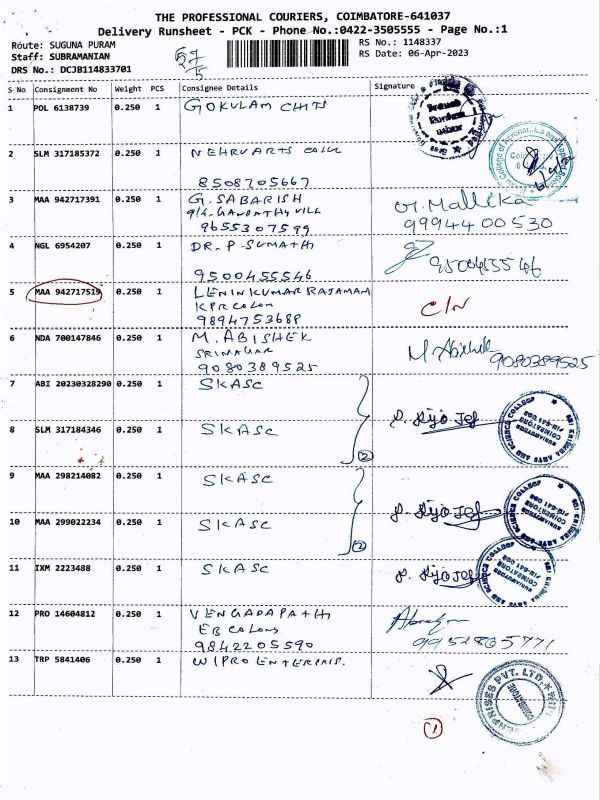 THE PROFESSIONAL COURIERS, COIMBATORE-641037
Delivery Runsheet - PCK - Phone No.:0422-3505555 - Page No.:1
Route: SUGUNA PURAM
RS No.: 1148337
Staff: SUBRAMANIAN
RS Date: 06-Apr-2023
DRS No.: DCJB114833701
57/5
S No Consignment No Weight PCS Consignee Details Signature
1 POL 6138739 0.250 1 GOKULAM CHITS
2 SLM 317185372 0.250 1 NEHRU ARTS
8508705667
3 MAA 942717391 0.250 1 G. SABARISH
9655307599
M. Mallika
9994400530
4 NGL 6954207 0.250 1 DR. P. SUMATHI
9500455546
5 MAA 942717519 0.250 1 LENIN KUMAR RAJAMANI
KPR COLONY
9894753688
C/N
6 NDA 700147846 0.250 1 M. ABISHEK
SRINAGAR
9080389525
M. Abishek 9080389525
7 ABI 20230328290 0.250 1 SKASC
8 SLM 317184346 0.250 1 SKASC
2
9 MAA 298214082 0.250 1 SKASC
10 MAA 299022234 0.250 1 SKASC
2
11 IXM 2223488 0.250 1 SKASC
12 PRO 14604812 0.250 1 VENGADAPATHI
EB COLONY
9842205590
13 TRP 5841406 0.250 1 WIPRO ENTERPRIS.
SRI KRISHNA ARTS AND SCIENCE COLLEGE
KUNIAMUTHUR
COIMBATORE
PIN-641 008
ENPRISES PVT. LTD.
COIMBATORE
1